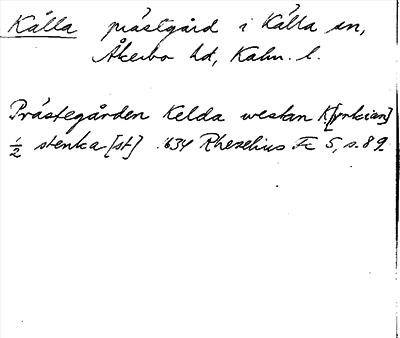 Källa prästgård i Källa sn,
Åkerbo hd, Kalm. l.
Prästegården Kelda westan K[yrkian]
½ stenka[st] 1634 Rhezelius Fc 5, s. 89